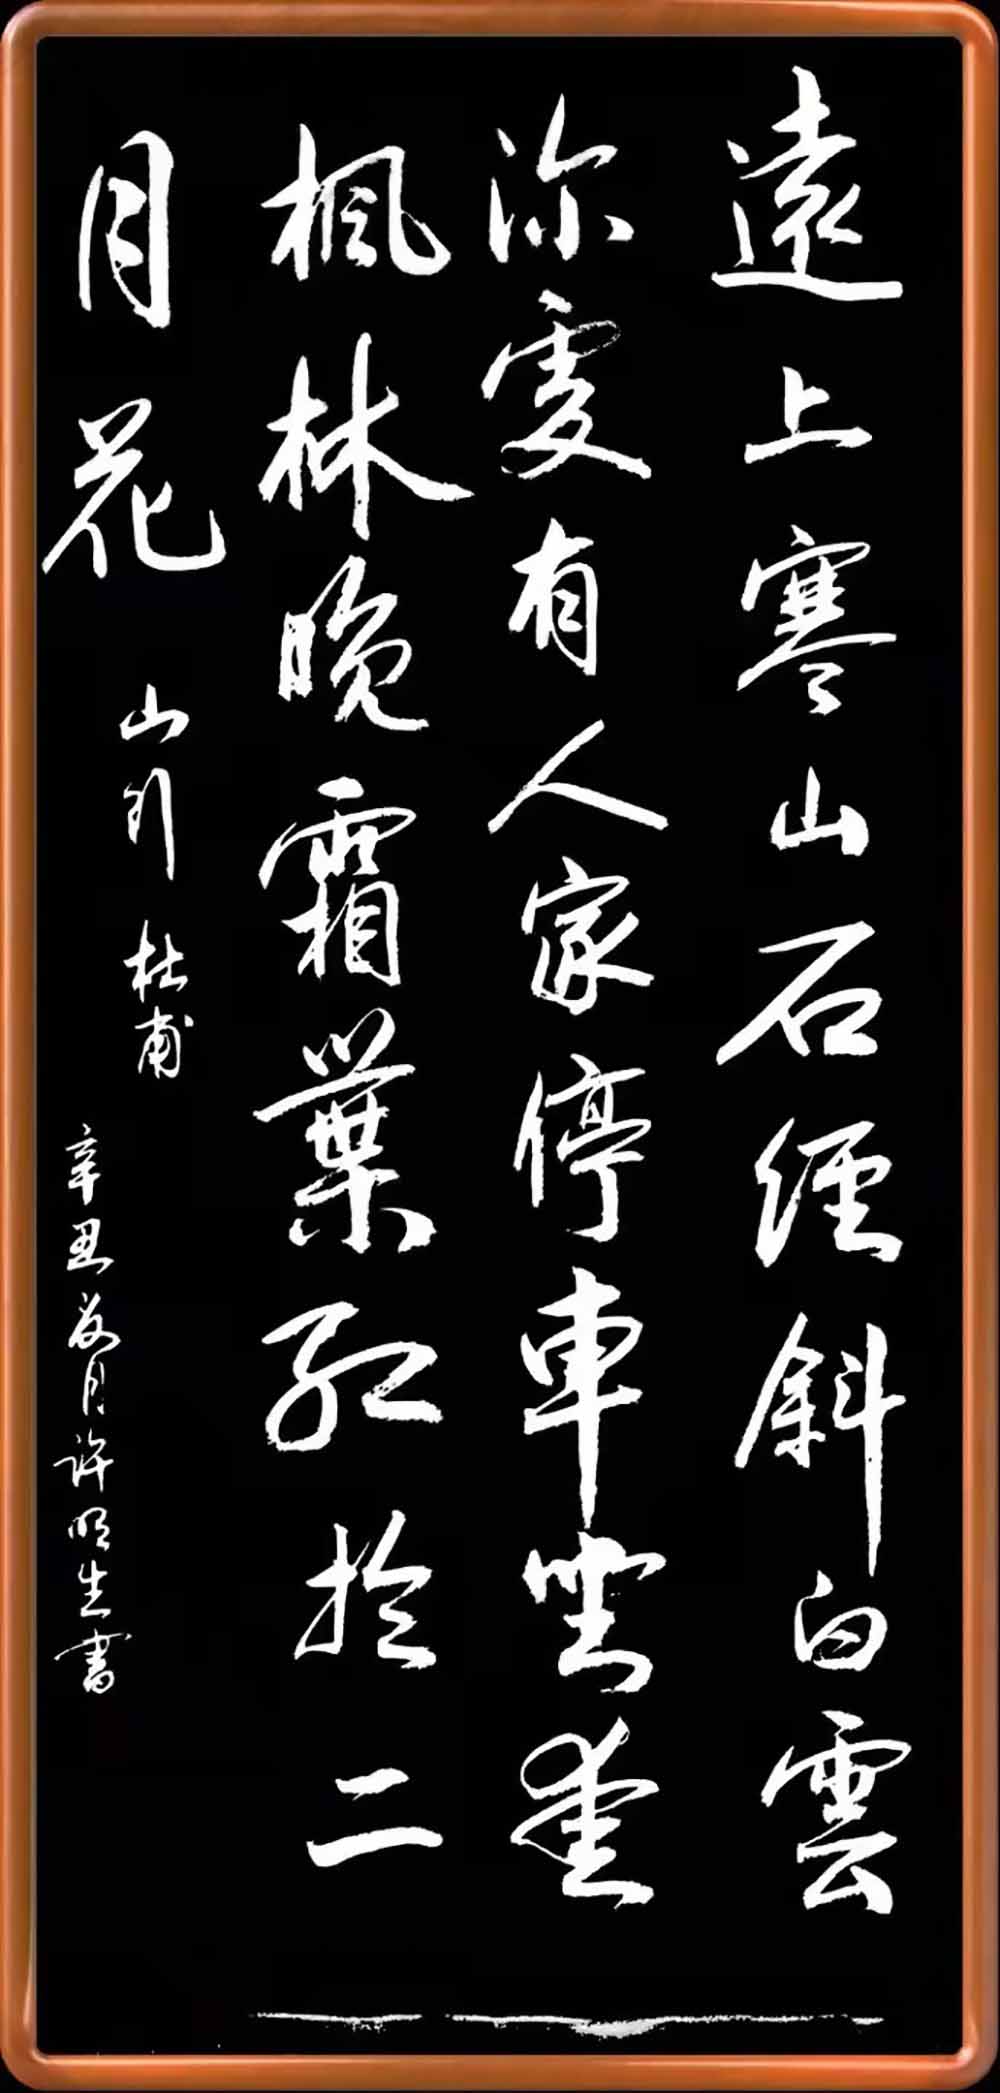 遠上寒山石經斜白雲
深處有人家停車坐愛
楓林晚霜葉紅於二
月花
山行 杜甫
辛丑 月許明生書